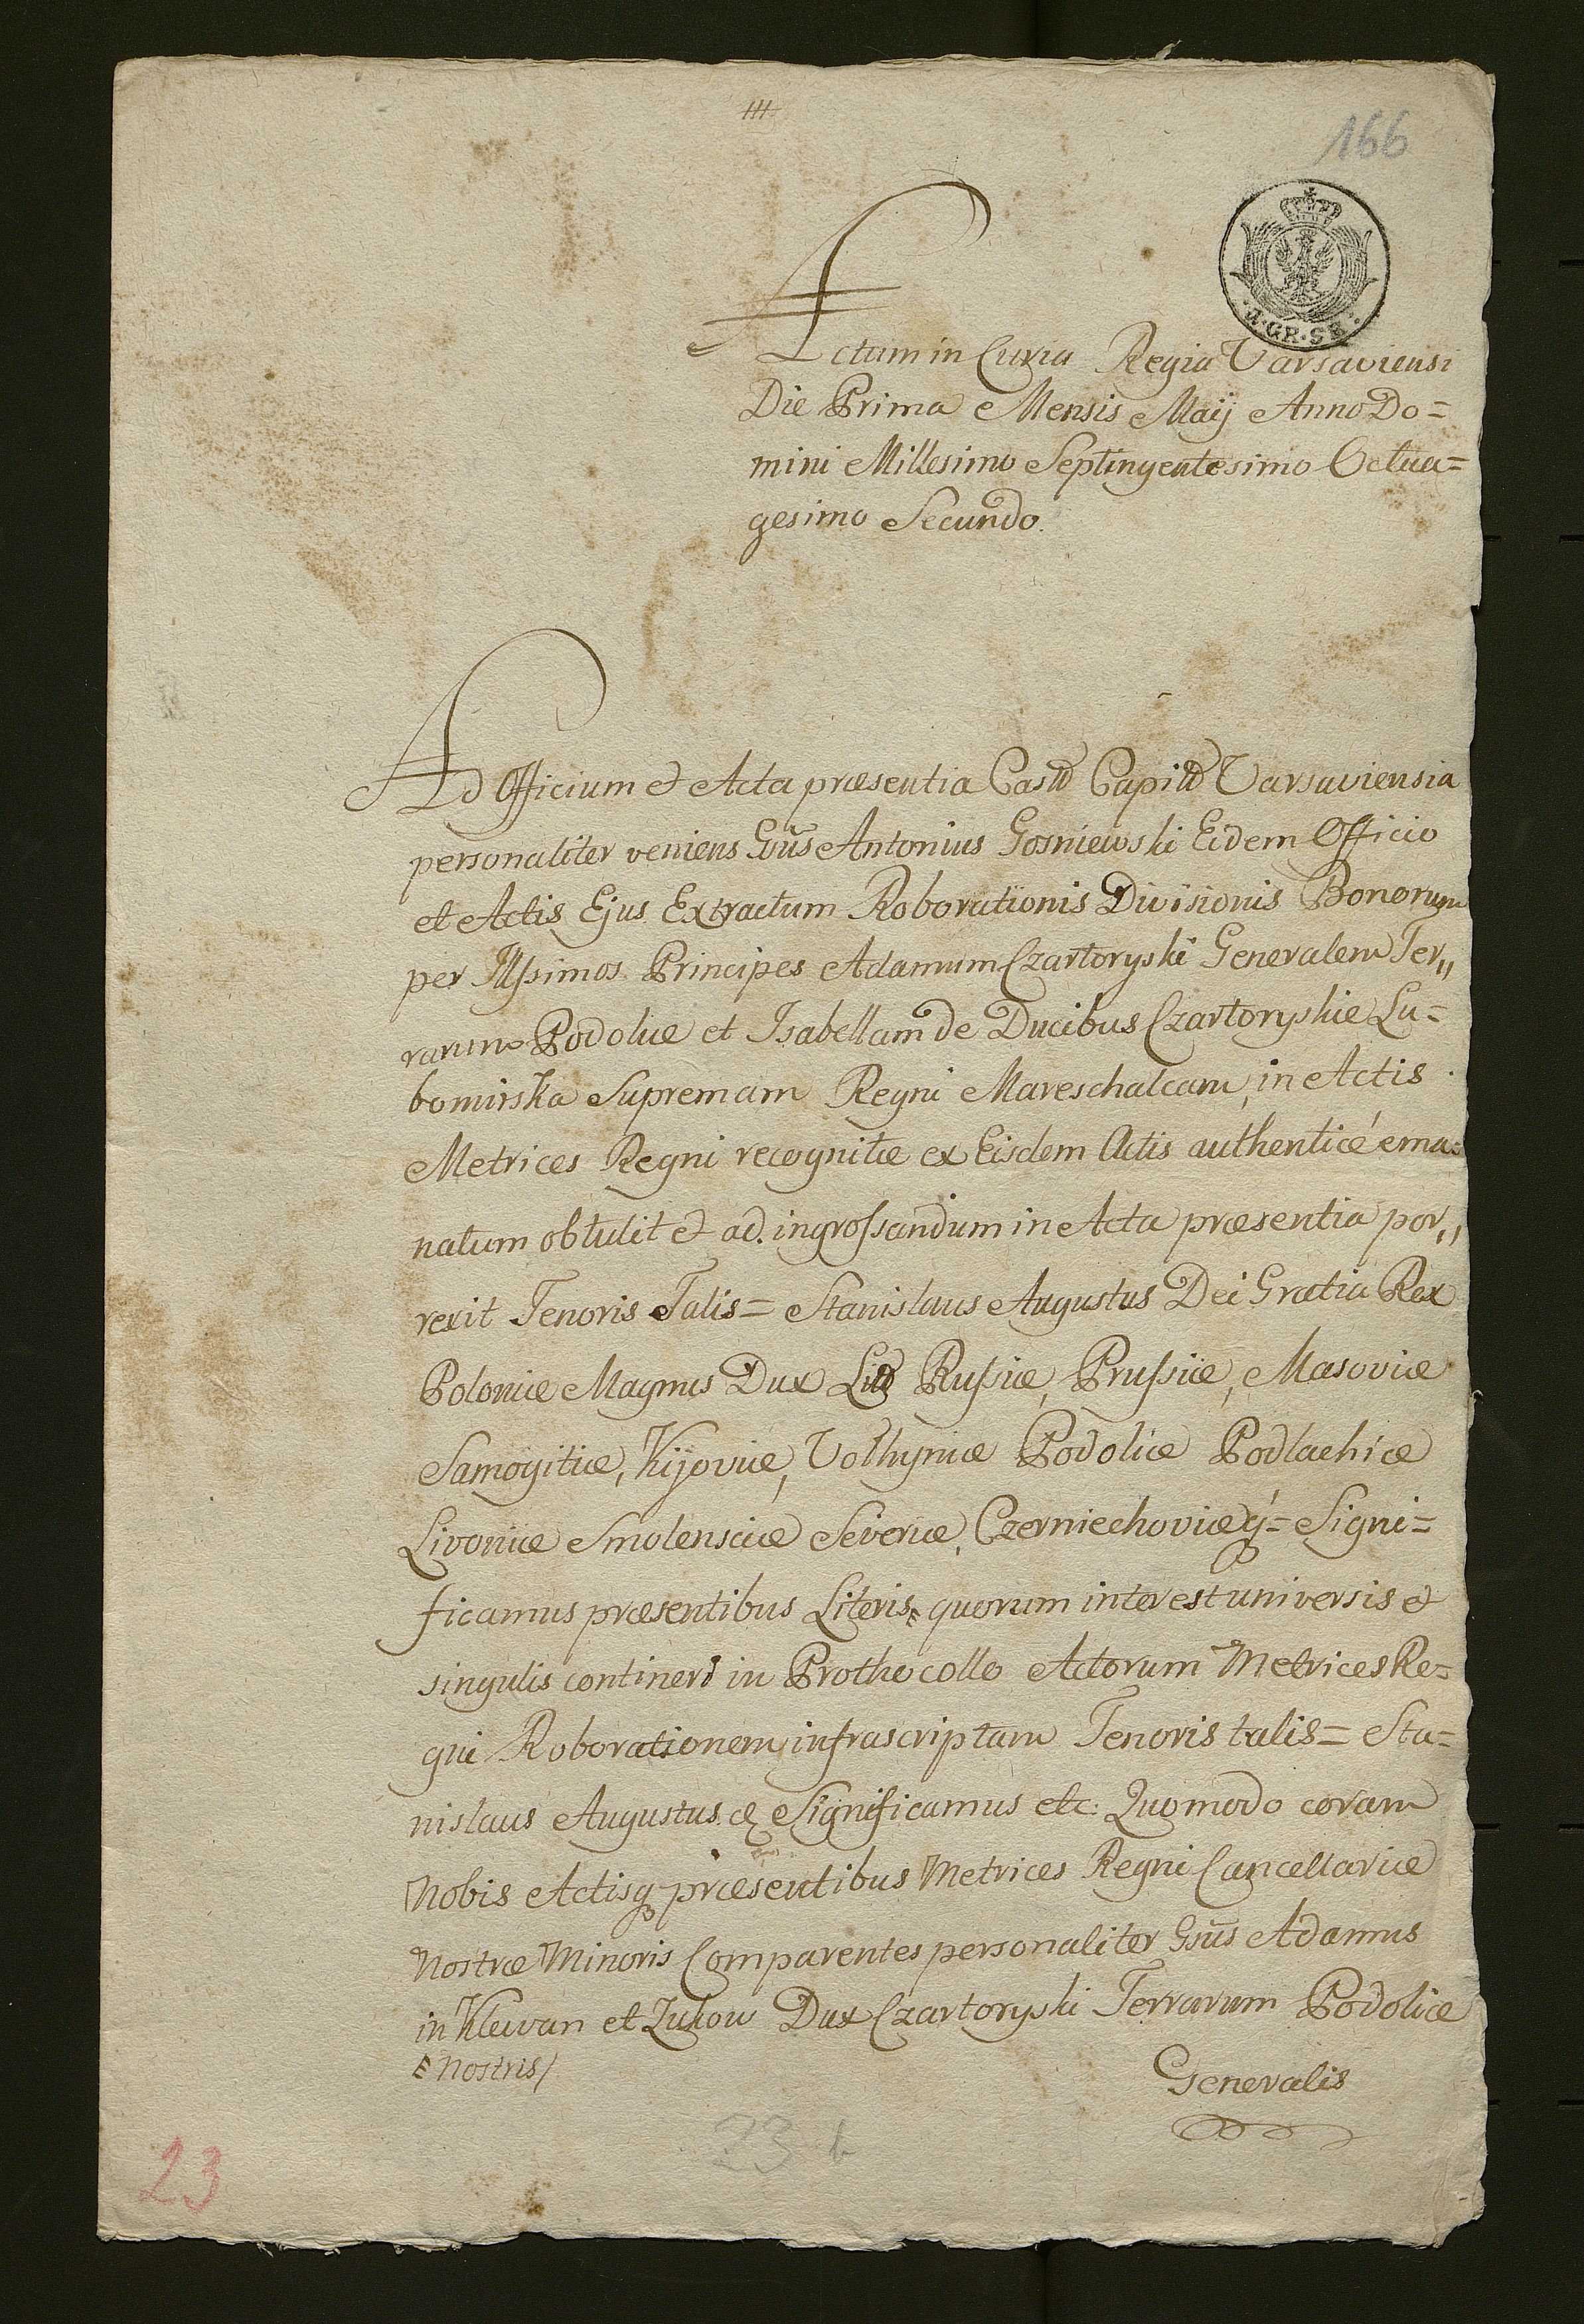 III
166
GR. S
Actum in Curia Regia Varsaviensi
Die Prima Mensis Maij Anno Do=
mini Millesimo Septingentesimo Octua=
gesimo Secundo.
Ad Officium et Acta præsentia Varsaviensia
personaliter veniens Gsūs Antonius Gosniewski Eidem Officio
et Actis Ejus Extractum Roborationis Divisionis Bonorum
per Illssimos Principes Adamum Czartoryski Generalem Ter„
rarum Podoliæ et Isabellam de Ducibus Czartoryskie Lu=
bomirska Supremam Regni Mareschalcam, in Actis
Metrices Regni recognitæ ex Eisdem Actis authenticé ema=
natum obtulit et ad ingrossandum in Acta præsentia por„
rexit Tenoris Talis= Stanislaus Augustus Dei Gratia Rex
Poloniæ Magnus Dux Litt Russiæ, Prussiæ, Masoviæ
Samogitiæ, Kijoviæ, Volhyniæ Podoliæ Podlachiæ
Livoniæ Smolensciæ Severiæ, Czerniechoviæq́= Signi=
ficamus præsentibus Literis quorum interest universis et
singulis contineri in Prothocollo Actorum Metrices Re=
gni Roborationem infrascriptam Tenoris talis= Sta=
nislaus Augustus & Significamus etc: Quomodo coram
Nobis Actisq præsentibus Metrices Regni Cancellariæ
Nostræ Minoris Comparentes personaliter Gsūs Adamus
in Klewan et Zukow Dux Czartoryski Terrarum Podoliæ
Nostris/
Generalis
23 b
23